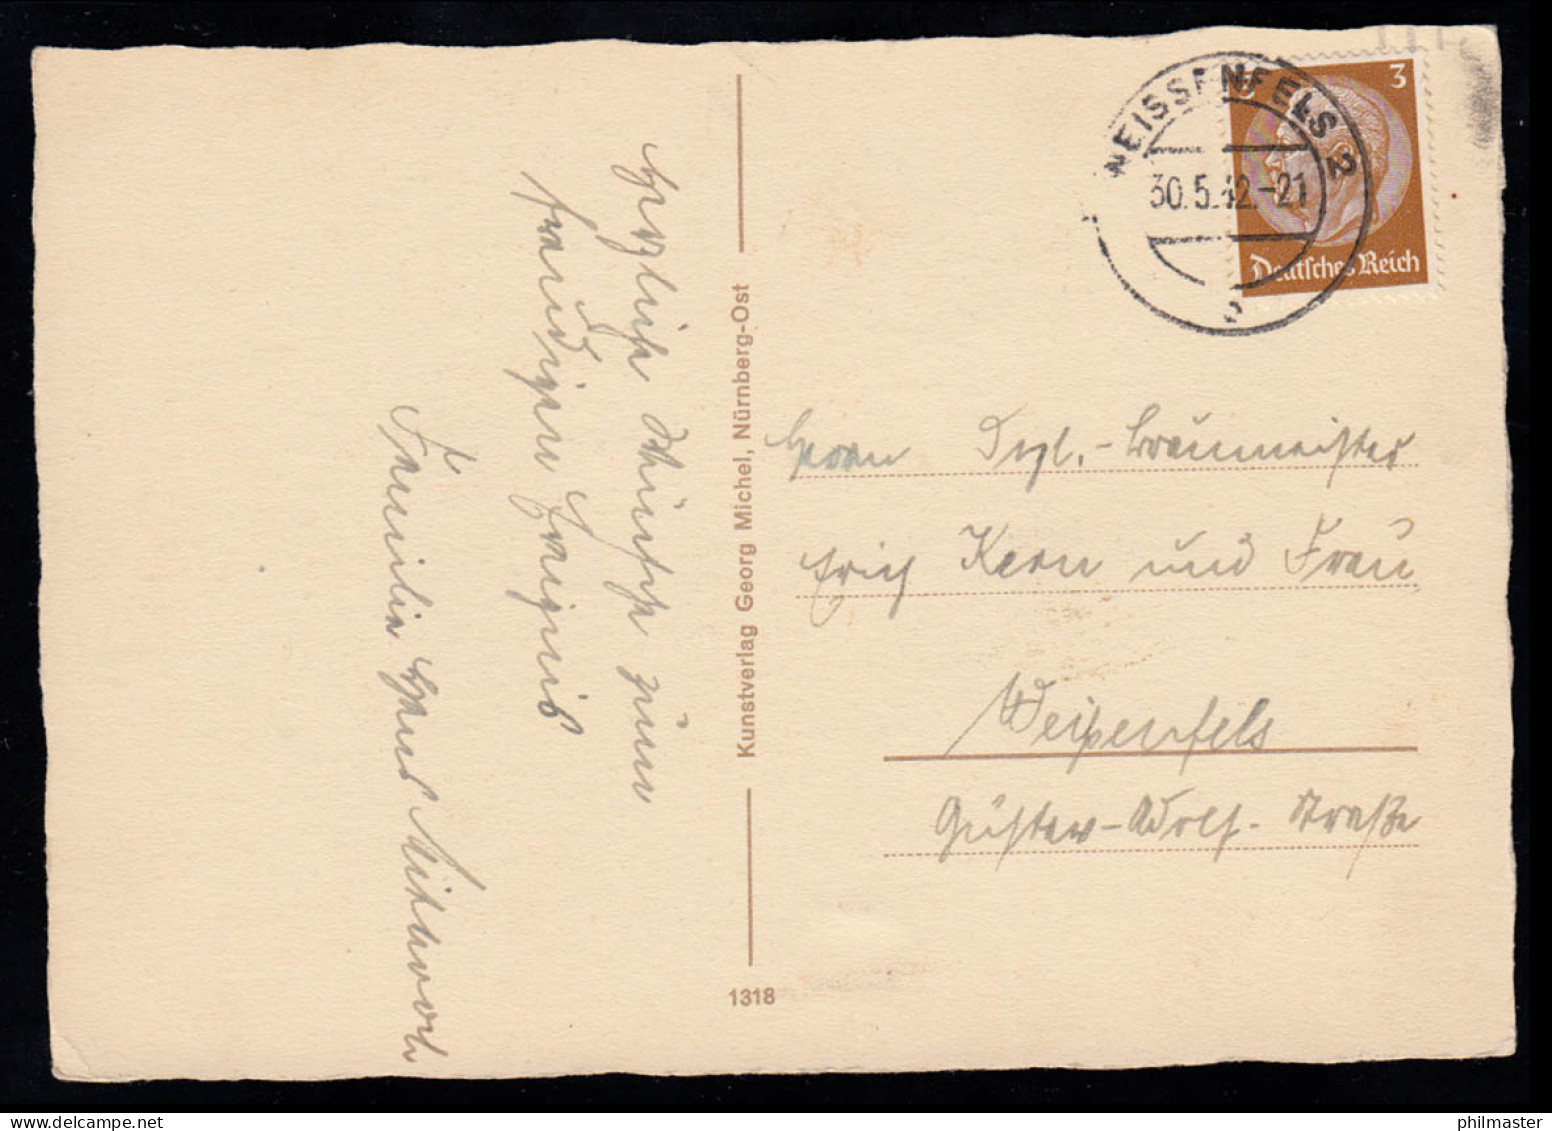 WEISSENFELS 2
30.5.42.-21
c
3
3
Deutsches Reich
Herzliche Wünsche zum
freudigen Ereignis
Familie Hans
Kunstverlag Georg Michel, Nürnberg-Ost
1318
Herrn Dipl.-Braumeister
Erich Kern und Frau
Weißenfels
Gustav-Adolf-Straße
www.delcampe.net
philmaster